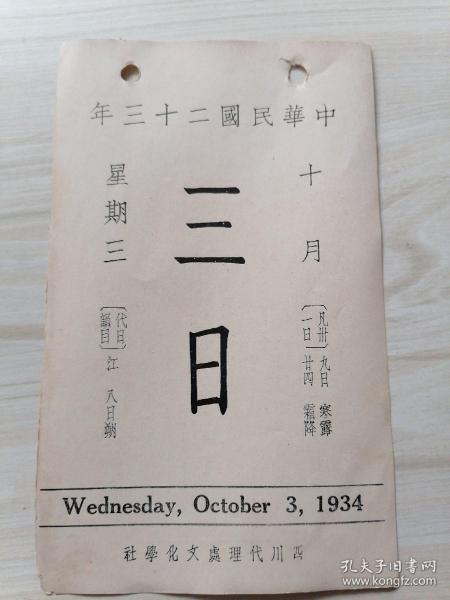 中華民國二十三年
十月
三日
星期三
〔凡卅一日〕
九日 寒露
廿四 霜降
〔代日韻目〕
江 八日朔
Wednesday, October 3, 1934
四川代理處文化學社
孔夫子旧书网
www.kongfz.com